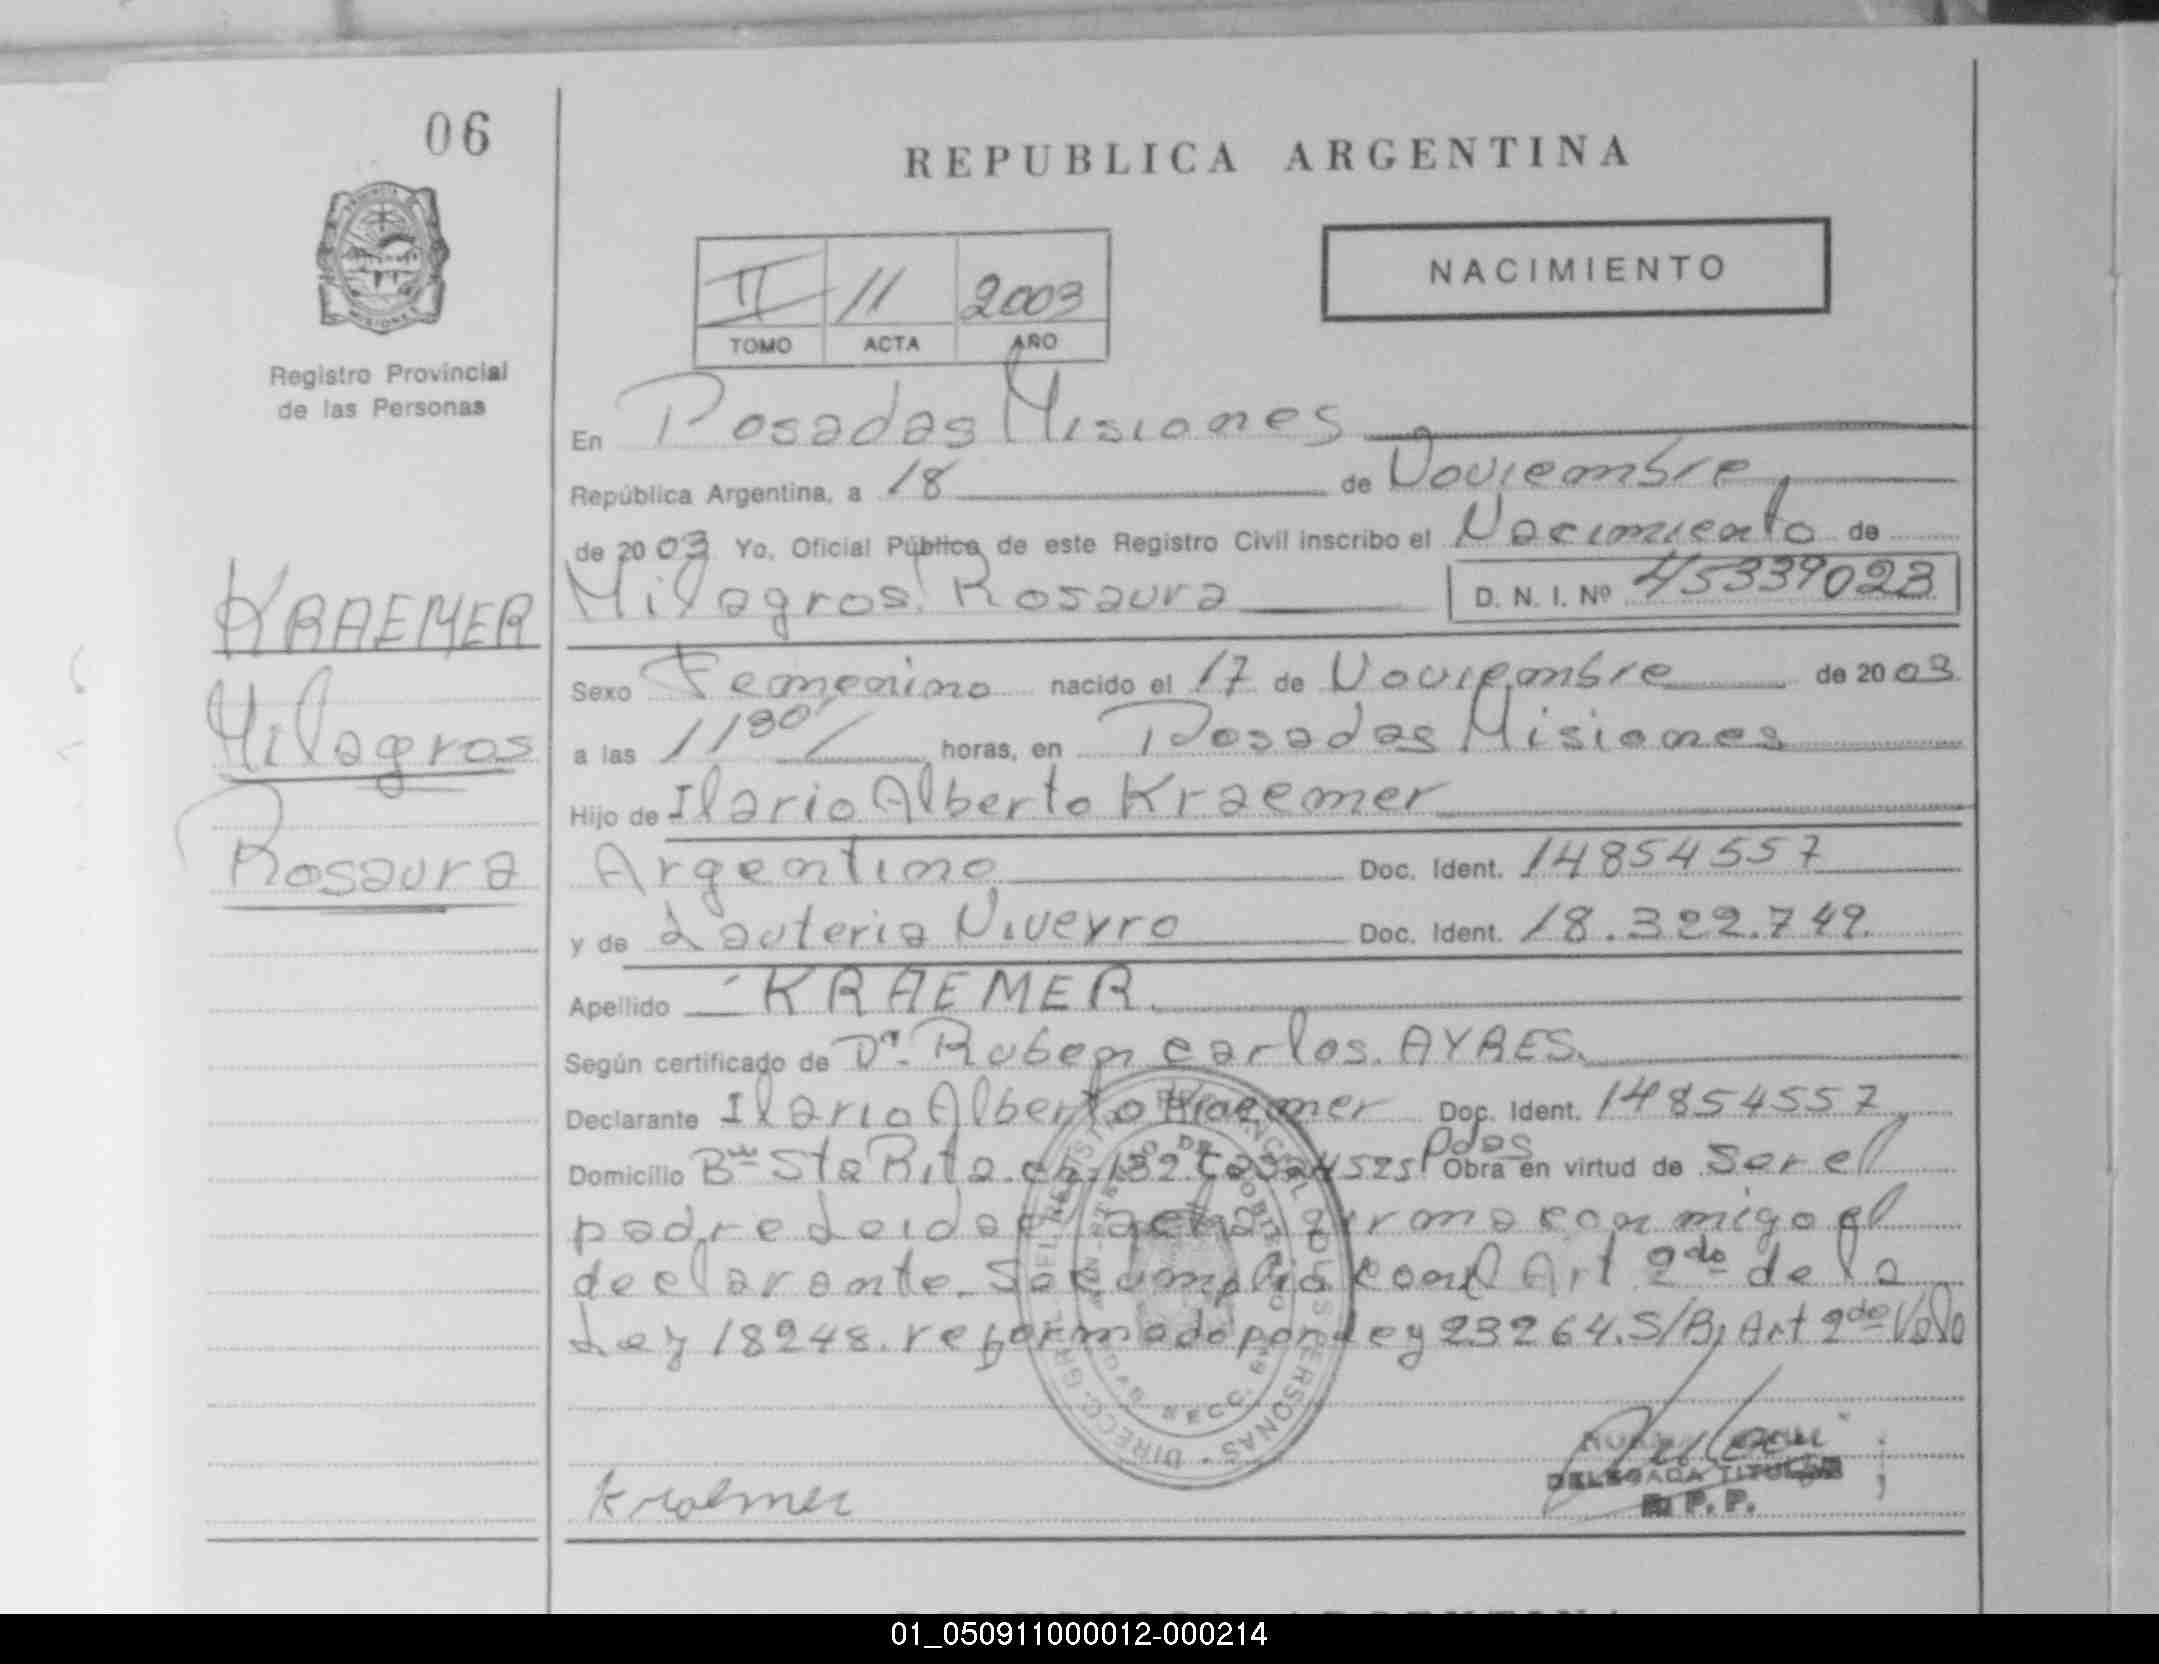 06
REPUBLICA ARGENTINA
NACIMIENTO
II 11 2003
TOMO ACTA AÑO
PROVINCIA
MISIONES
Registro Provincial
de las Personas
En Posadas Misiones
República Argentina, a 18 de Noviembre
de 2003 Yo, Oficial Público de este Registro Civil inscribo el Nacimiento de
Milagros Rosaura D. N. I. Nº 45339023
KRAEMER
Milagros
Rosaura
Sexo Femenino nacido el 17 de Noviembre de 2003
a las 1130 horas, en Posadas Misiones
Hijo de Ilario Alberto Kraemer
Argentino Doc. Ident. 14854557
y de Lauteria Viveyro Doc. Ident. 18.322.749.
Apellido KRAEMER
Según certificado de Dr. Ruben Carlos. AYRES.
Declarante Ilario Alberto Kraemer Doc. Ident. 14854557
Domicilio Bº Sta Rita. ch. 132. Casa 4525 Pdas Obra en virtud de Ser el
padre Leida el acta firma conmigo el
declarante. Se cumplió con el Art 2do de la
Ley 18248. reformado por Ley 23264. S/B, Art 2do Vale
Kraemer
DELEGADA TITULAR
R. P. P.
01_050911000012-000214